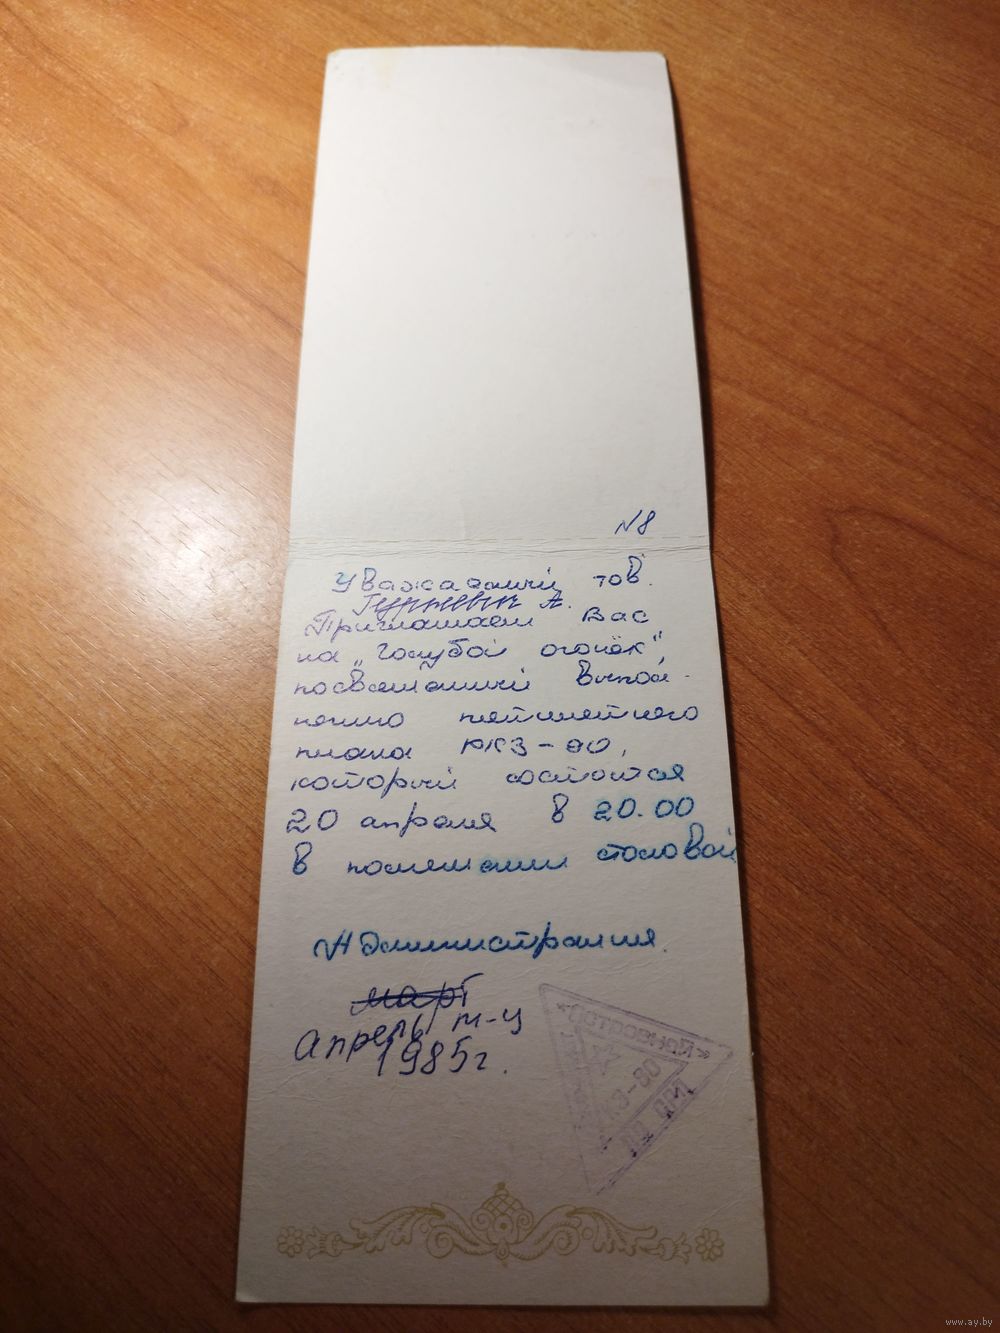 N8
Уважаемый тов.
Гурневич А.
Приглашаем Вас
на „Голубой огонёк",
посвящённый выпол-
нению пятилетнего
плана РКЗ-80,
который состоится
20 апреля в 20.00
в помещении столовой
Администрация.
март
Апрель м-ц
1985г.
КЗ-80
www.ay.by